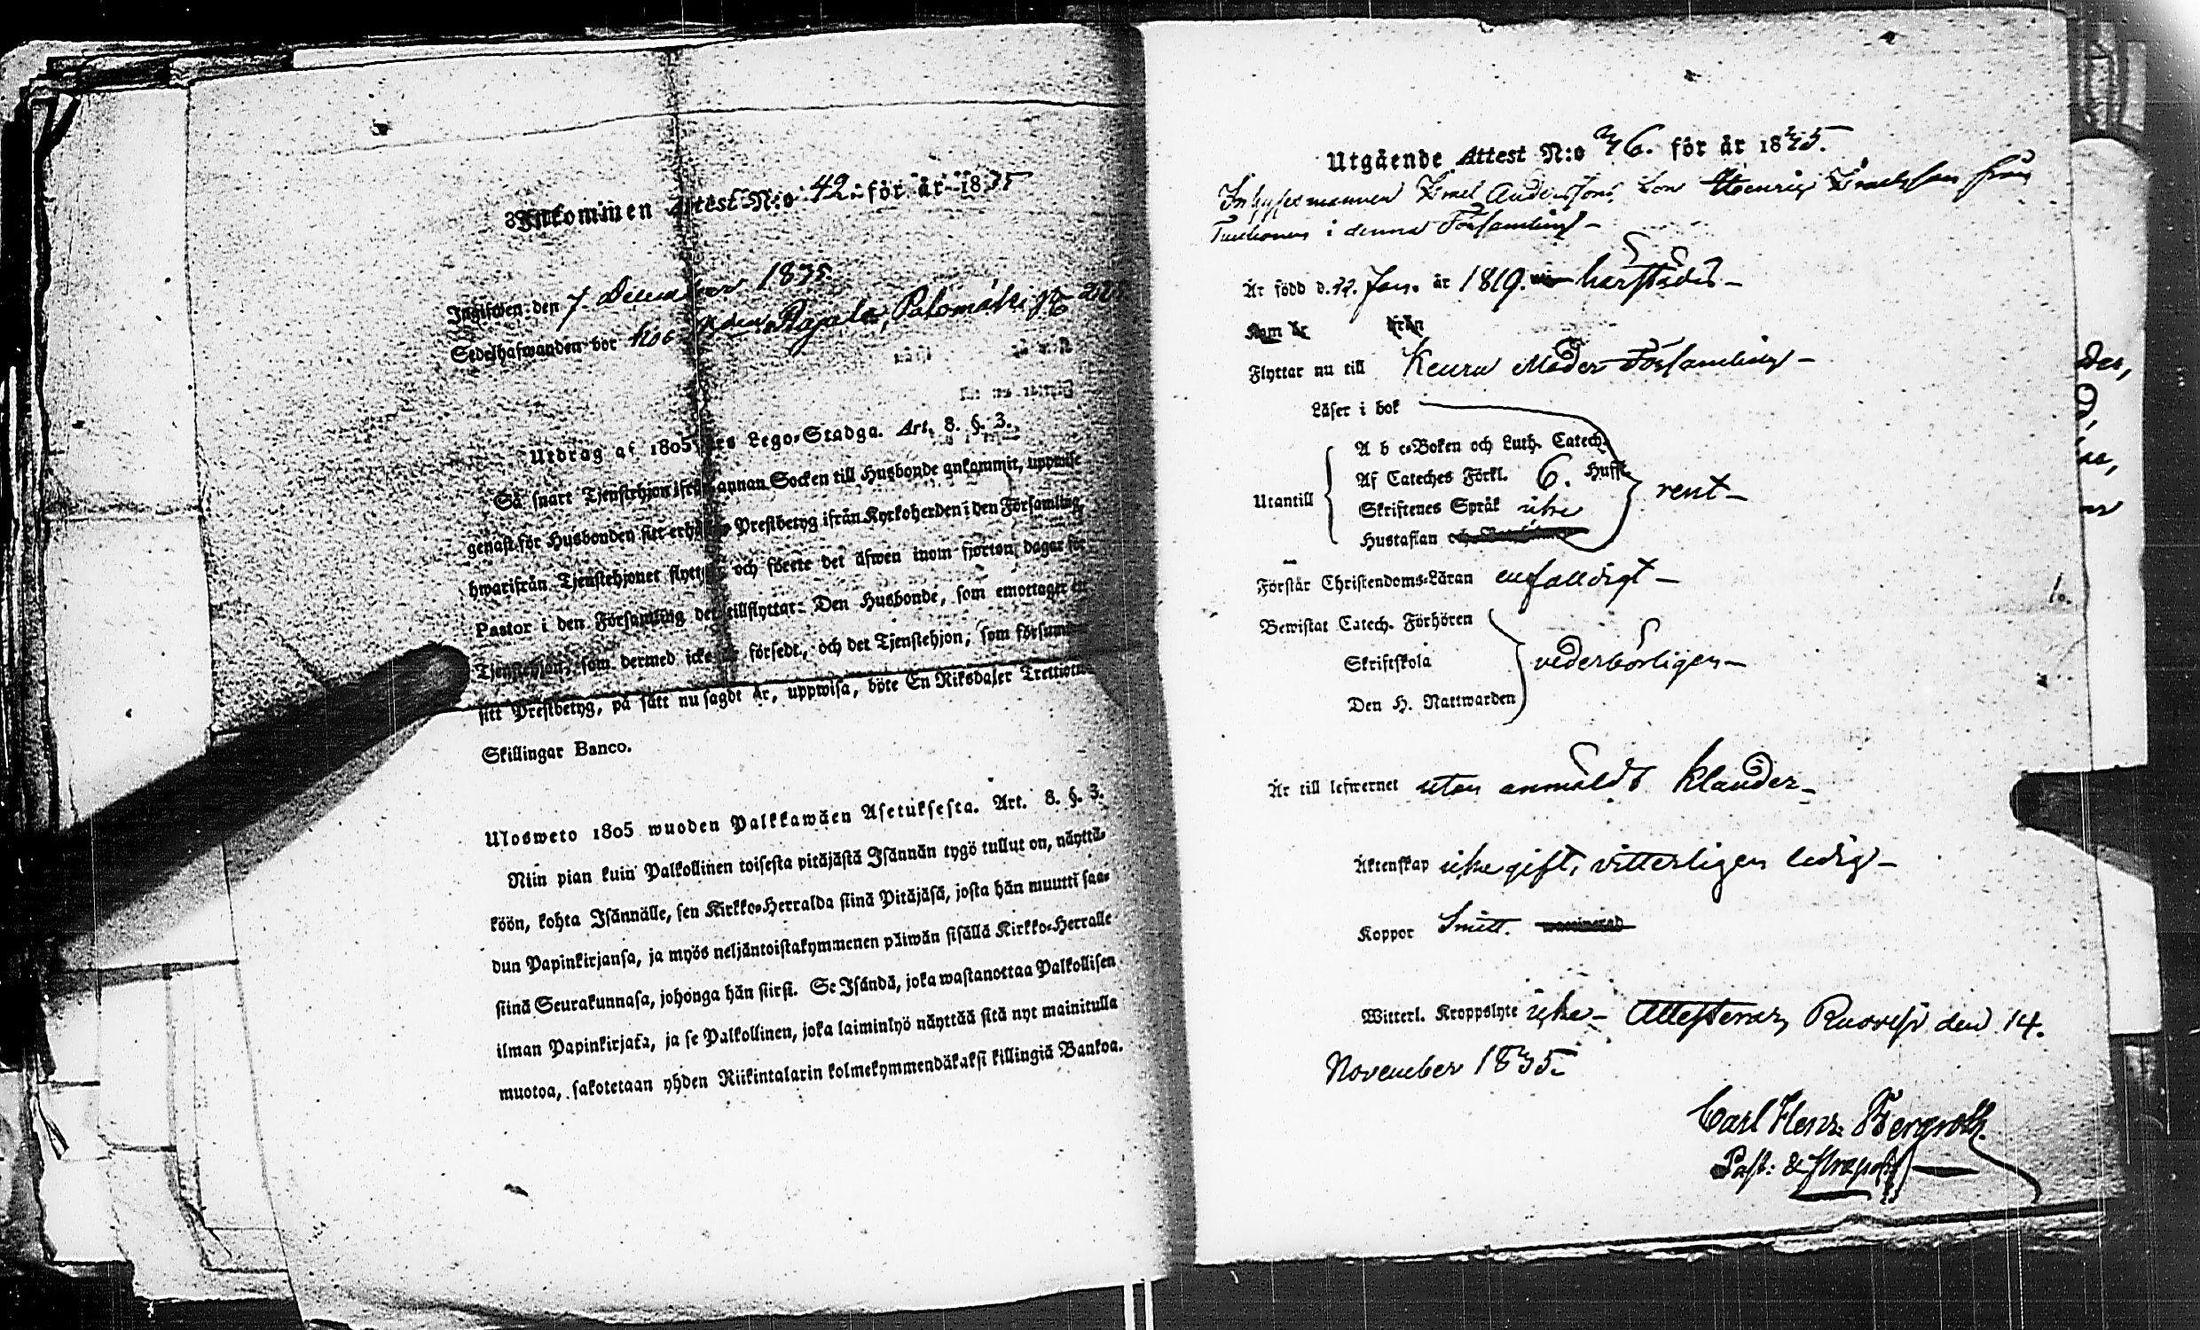 Inkommen Attest N:o 42 för år 1835
Ingifwen den 7. December 1835.
Sedelhafwanden bor hos Rajala, Palomäki
Utdrag af 1805 års Lego-Stadga. Art. 8. §. 3.
Så snart Tjenstehjon ifrån annan Socken till Husbonde ankommit, uppwise
genast för Husbonden sitt erhållne Prestbetyg ifrån Kyrkoherden i den Församling,
hwarifrån Tjenstehjonet flyttat, och förete det äfwen inom fjorton dagar för
Pastor i den Församling det tillflyttat. Den Husbonde, som emottager ett
Tjenstehjon, som dermed icke är försedt, och det Tjenstehjon, som försummar
sitt Prestbetyg, på sätt nu sagdt är, uppwisa, böte En Riksdaler Trettiotwå
Skillingar Banco.
Ulosweto 1805 wuoden Palkkawäen Asetuksesta. Art. 8. §. 3.
Niin pian kuin Palkollinen toisesta pitäjästä Isännän tygö tullut on, näyttä-
köön, kohta Isännälle, sen Kirkko-Herralda siinä Pitäjäsä, josta hän muutti saa-
dun Papinkirjansa, ja myös neljäntoistakymmenen päiwän sisällä Kirkko-Herralle
siinä Seurakunnasa, johonga hän siirsi. Se Isändä, joka wastanottaa Palkollisen
ilman Papinkirjata, ja se Palkollinen, joka laiminlyö näyttää sitä nyt mainitulla
muotoa, sakotetaan yhden Riikintalarin kolmekymmendäkaksi killingiä Bankoa.
Utgående Attest N:o 36. för år 1835.
Inhysesmannen Israel Anderssons Son Henric Israelsson från
i denna Församling
Är född d. 22. Jan. år 1819. härstädes
Kom år från
Flyttar nu till Keuru Moder Församling
Läser i bok
A b c-Boken och Luth. Catech.
Af Cateches Förkl. 6. Hufst.
Utantill rent
Skriftenes Språk icke
Hustaflan
Förstår Christendoms-Läran enfalldigt
Bewistat Catech. Förhören
Skriftskola vederbörligen
Den H. Nattwarden
Är till lefwernet utan anmäldt klander
Äktenskap icke gift, vitterligen ledig
Koppor Smitt. waccinerad
Witterl. Kroppslyte icke Attesterar, Ruovesi den 14.
November 1835.
Carl Henr. Bergroth.
Past: & Præpos: